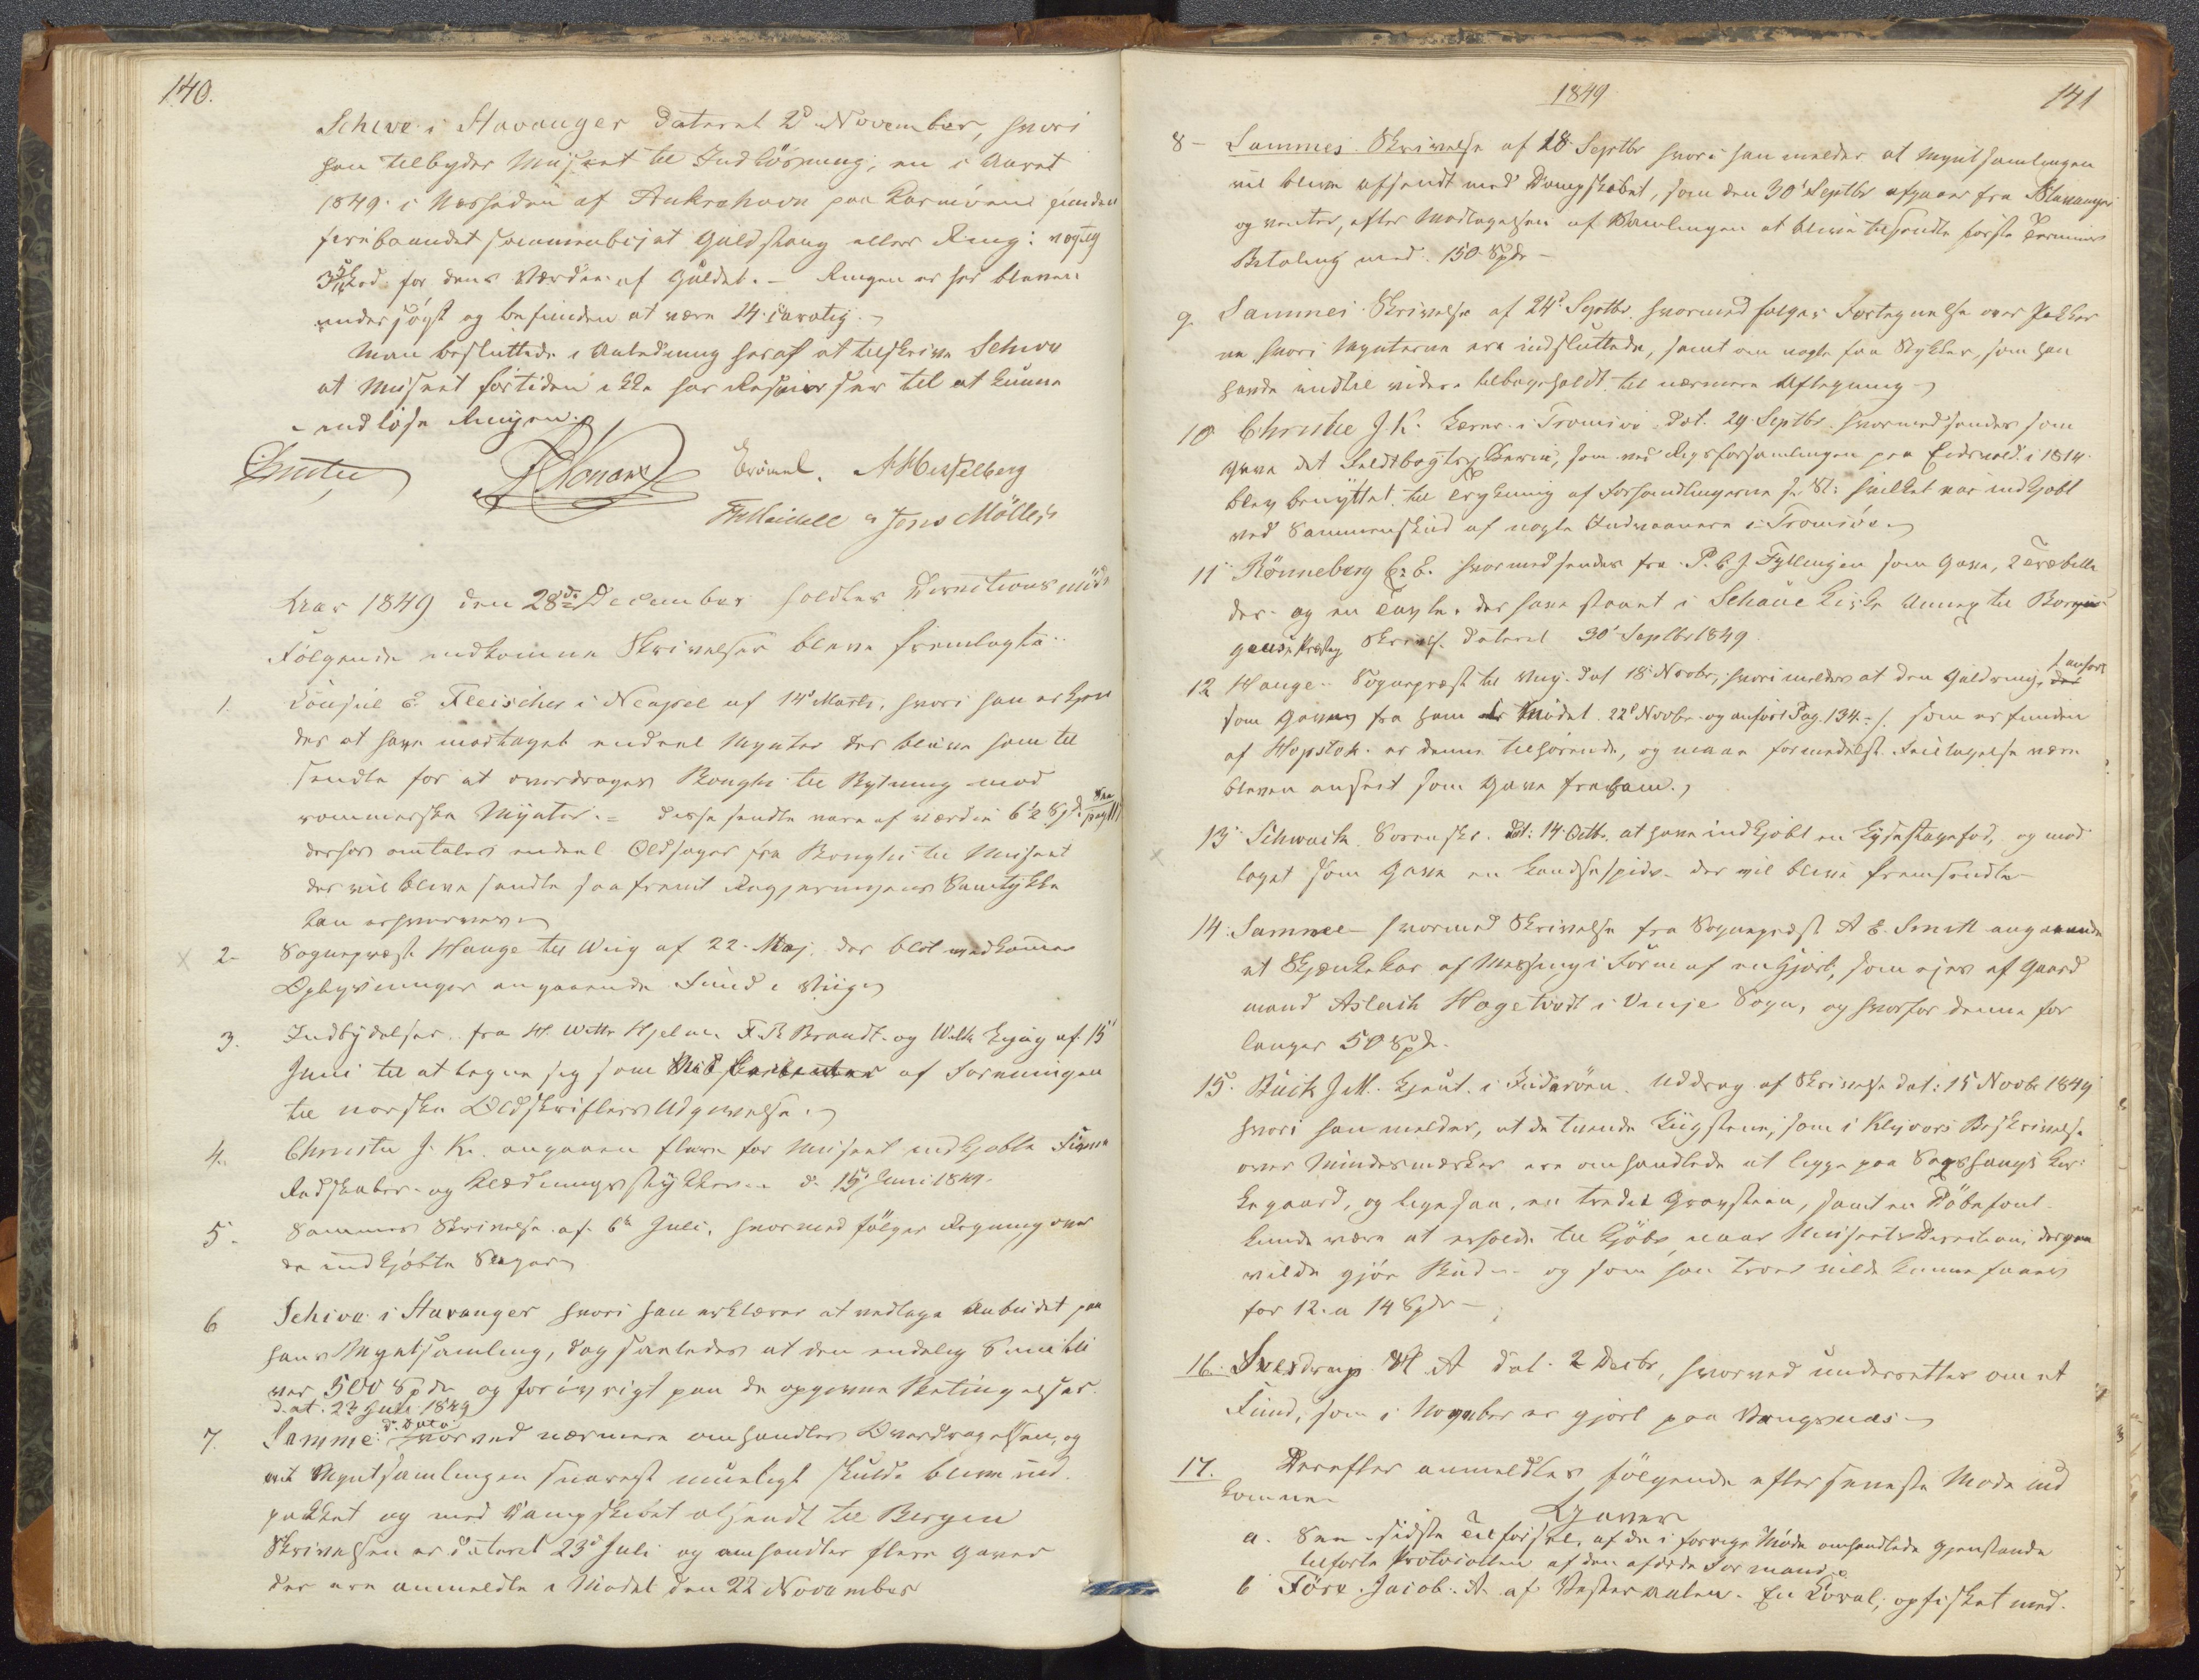 140.
Schive i Stavanger dateret 2d November, hvori
han tilbyder Museet til Indløsning, en i Aaret
1849 i Nærheden af Aakrehavn paa Karmøen funden
sammenbøjet Guldstang eller Ring: vægtig
3 Lod for dens Værdie af Guldet. – Ringen er her bleven
undersøgt og befunden at være 14 karatig. –
Man besluttede i Anledning heraf at tilskrive Schive
at Museet fortiden ikke har Ressourser til at kunne
indløse Ringen.
Christie Konow A Hesselberg
F Meidell Jens Möller
Aar 1849 den 28de December holdtes Directionsmöde
Følgende indkomne Skrivelser bleve fremlagte
1. Konsul C. Fleischer i Neapel af 14d Marts, hvori han erkjen
der at have modtaget endeel Mynter der bleve ham til
sendte for at overdrages Borghi til Bytning mod
rommerske Mynter. = disse sendte vare af værdie 6½ Spd.
derhos omtales endeel Oldsager fra Borghi til Museet
der vil blive sendte saafremt Regjeringens Samtykke
kan erhverves
x 2- Sognepræst Hauge til Wiig af 22. Maj. der blot vedkommer
Oplysninger angaaende Fund i Wiig
3. Indbydelser fra H. Witte Hjelm F. R. Brandt og af 15d
Juni til at tegne sig som af Foreningen
til norske Oldskrifters Udgivelse.
4. Christie J. K. angaaen flere for Museet indkjøbte
Redskaber og Klædningsstykker d. 15 Juni 1849.
5. Sammes Skrivelse af 6te Juli, hvormed følger Regning over
de indkjøbte Sager
6 Schive i Stavanger hvori han erklærer at vedtage Anbudet paa
hans Myntsamling, dog saaledes at den endelig Sum bli
ver 500 Spdr og forøvrigt paa de opgivne Betingelser.
dat. 22 Juli 1849
7. Samme: d. Dato hvorved nærmere omhandles Overdragelsen, og
at Myntsamlingen snarest mueligt skulde blive ind
pakket og med Dampskibet afsendt til Bergen
Skrivelsen er dateret 23d Juli og omhandler flere Gaver
der ere anmeldte i Mødet den 22 November
1849 141
8 – Sammes Skrivelse af 18 Septbr hvori han melder at Myntsamlingen
vil blive afsendt med Dampskibet, som den 30d Septbr afgaaer fra Stavanger
og venter, efter Modtagelsen af Samlingen at blive tilsendte første Termins
Betaling med 150 Spdr –
9. Sammes Skrivelse af 24d Septbr. hvormed følger Fortegnelse over Pakker
ne hvori Mynterne ere indsluttede, samt om nogle faa Stykker, som han
havde indtil videre tilbageholdt til nærmere Aftegning –
10 Christie J. K. Lærer i Tromsøe dat. 29 Septbr. hvormed sendes som
Gave det Feldtbogtrykkerie, som ved Rigsforsamlingen paa Eidsvold i 1814
blev benyttet til Trykning af Forhandlingerne hvilket var indkjøbt
ved Sammenskud af nogle Indvaanere i Tromsøe. –
11 Rönneberg C. E. hvormed sendes fra P. E. J. Fyllingen som Gave, 2 Træbille
der og en Tavle, der have staaet i Schaue Kirke Annex til Borgin
gens Præstg. Skrivelse dateret 30d Septbr 1849.
12 Hauge – Sognepræst til Wiig. dat 18 Novbr, hvori meldes at den Guldring,
som Gave fra ham Mødet 22d Novbr og anført Pag. 134. som er funden
af Hopstok er denne tilhørende, og maae formedelst Feiltagelse være
bleven anført som Gave fra ham.
x 13 Schwach Sorenskr. dat: 14 Octbr. at have indkjøbt en Lysestagefod, og mod
taget som Gave en Landsespids der vil blive fremsendte –
14 Samme – hvormed Skrivelse fra Sognepræst A E. Smitt angaaende
et Skjænkekar af Messing i Form af en Hjort, som ejes af Gaard
mand Aslach Hagetvedt i Vinje Sogn, og hvorfor denne for
langer 50 Spdr.
15. Buch J. M. Lieut. i Inderøen. Uddrag af Skrivelse dat: 15 Novbr 1849
hvori han melder, at de tvende Liigstene, som i Klüvers Beskrivelse
over Mindesmærker ere omhandlede at ligge paa Saxhaugs Kir
kegaard, og ligesaa, en tredie Gravsteen, samt en Döbefont
kunde være at erholde til Kjøbs naar Museets Direction derpaa
vilde gjøre Bud – og som han troer vilde kunne faaes
for 12 a 14 Spdr –
16. Sverdrup H A dat. 2 Decbr, hvorved underrettes om et
Fund, som i November er gjort paa Vangsnæs –
17. Derefter anmeldtes følgende efter seneste Møde ind
komne
Gaver
a. Den sidste Tilførsel, af de i forrige Møde omhandlede Gjenstande
tilførte Protocollen af den afdøde Formand.
b Före Jacob. A. af Vesteraalen. En Koral, opfisket med.